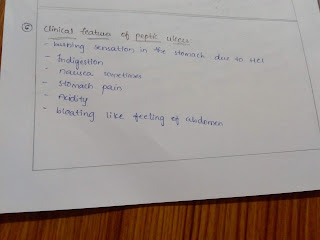 6 Clinical features of peptic ulcers:
- burning sensation in the stomach due to HCl
- Indigestion
- nausea sometimes
- Stomach pain
- Acidity
- bloating like feeling of abdomen